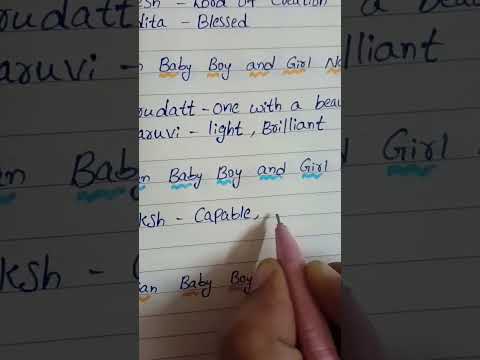 esh - Lord of Creation
dita - Blessed
n Baby Boy and Girl Na
rudatt - one with a beau
aruvi - light, Brilliant
an Baby Boy and Girl
ksh - Capable,
ian Baby Boy